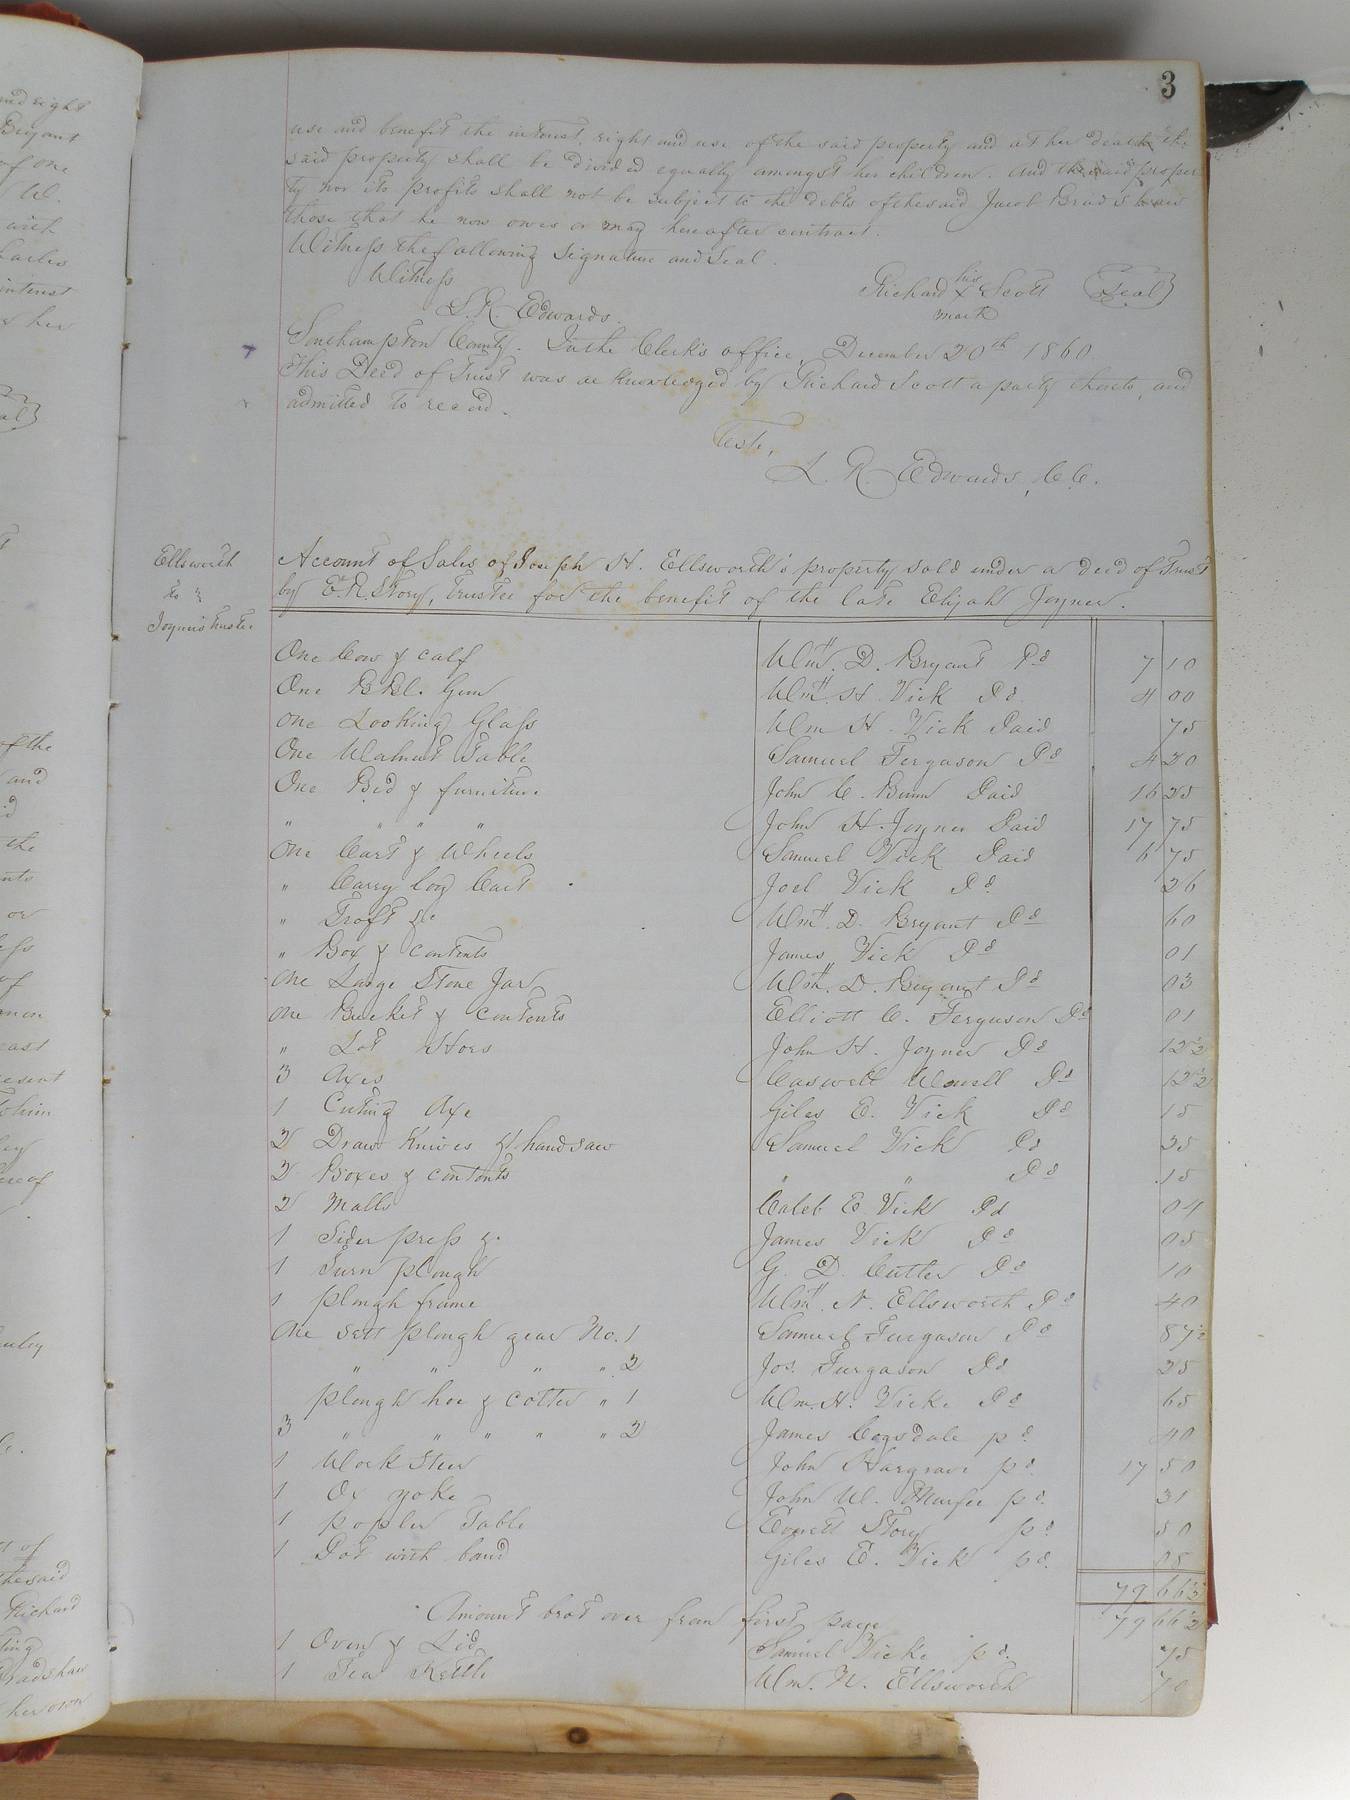 3
use and benefit the interest, right and use of the said property and at her death the
said property shall be divided equally amongst her children. and the said proper
ty nor its profits shall not be subject to the debts of the said Jacob
those that he now owes or may hereafter contract.
Witness the following signature and seal.
Witness
Richard his x mark Scott (Seal)
L. R. Edwards.
Southampton County. In the Clerk's office, December 20th 1860
This Deed of Trust was acknowledged by Richard Scott a party thereto, and
admitted to record.
Teste,
L. R. Edwards, C.C.
Ellsworth
to }
Joyner's trustee
Account of Sales of Joseph H. Ellsworth's property sold under a deed of Trust
by E. R. Story, Trustee for the benefit of the late Elijah Joyner.
One Cow & calf Wm. D. Bryant Pd 7 10
One B Bl. Gun Wm. H. Vick Pd 4 00
one Looking Glass Wm H. Vick Paid 75
One Walnut Table Samuel Ferguson Pd 4 20
One Bed & furniture John C. Bunn Paid 16 25
" " " " John H. Joyner Paid 17 75
One Cart & Wheels Samuel Vick Paid 6 75
" Carry log Cart Joel Vick Pd 26
" Troft &c Wm. D. Bryant Pd 60
" Box & contents James Vick Pd 01
One Large Stone Jar Wm. D. Bryant Pd 03
One Bucket & contents Elliott C. Ferguson Pd 01
" Lot Hoes John H. Joyner Pd 12½
3 Axes Caswell Worrell Pd 12½
1 Cuting Axe Giles E. Vick Pd 15
2 Draw Knives & 1 hand saw Samuel Vick Pd 35
2 Boxes & contents " " Pd .15
2 Malls Caleb E Vick Pd 04
1 Sider press &. James Vick Pd 05
1 Turn plough G. D. Cutler Pd 10
1 plough frame Wm. N. Ellsworth Pd 40
One sett plough gear No. 1 Samuel Furgason Pd 87½
" " " " 2 Jos. Furgason Pd 25
plough hoe & cotter " 1 Wm. H. Vick Pd 65
3 " " " " " 2 James Cogsdale pd. 40
1 Work Steer John Hargrave pd. 17 50
1 Ox yoke John W. Murfee pd. 31
1 popler Table Everett Story pd. 50
1 Pot with band Giles E. Vick pd. 05
79 66½
Amount brot over from first page 79 66½
1 Oven & Lid Samuel Vick pd. 75
1 Tea Kettle Wm. N. Ellsworth 70